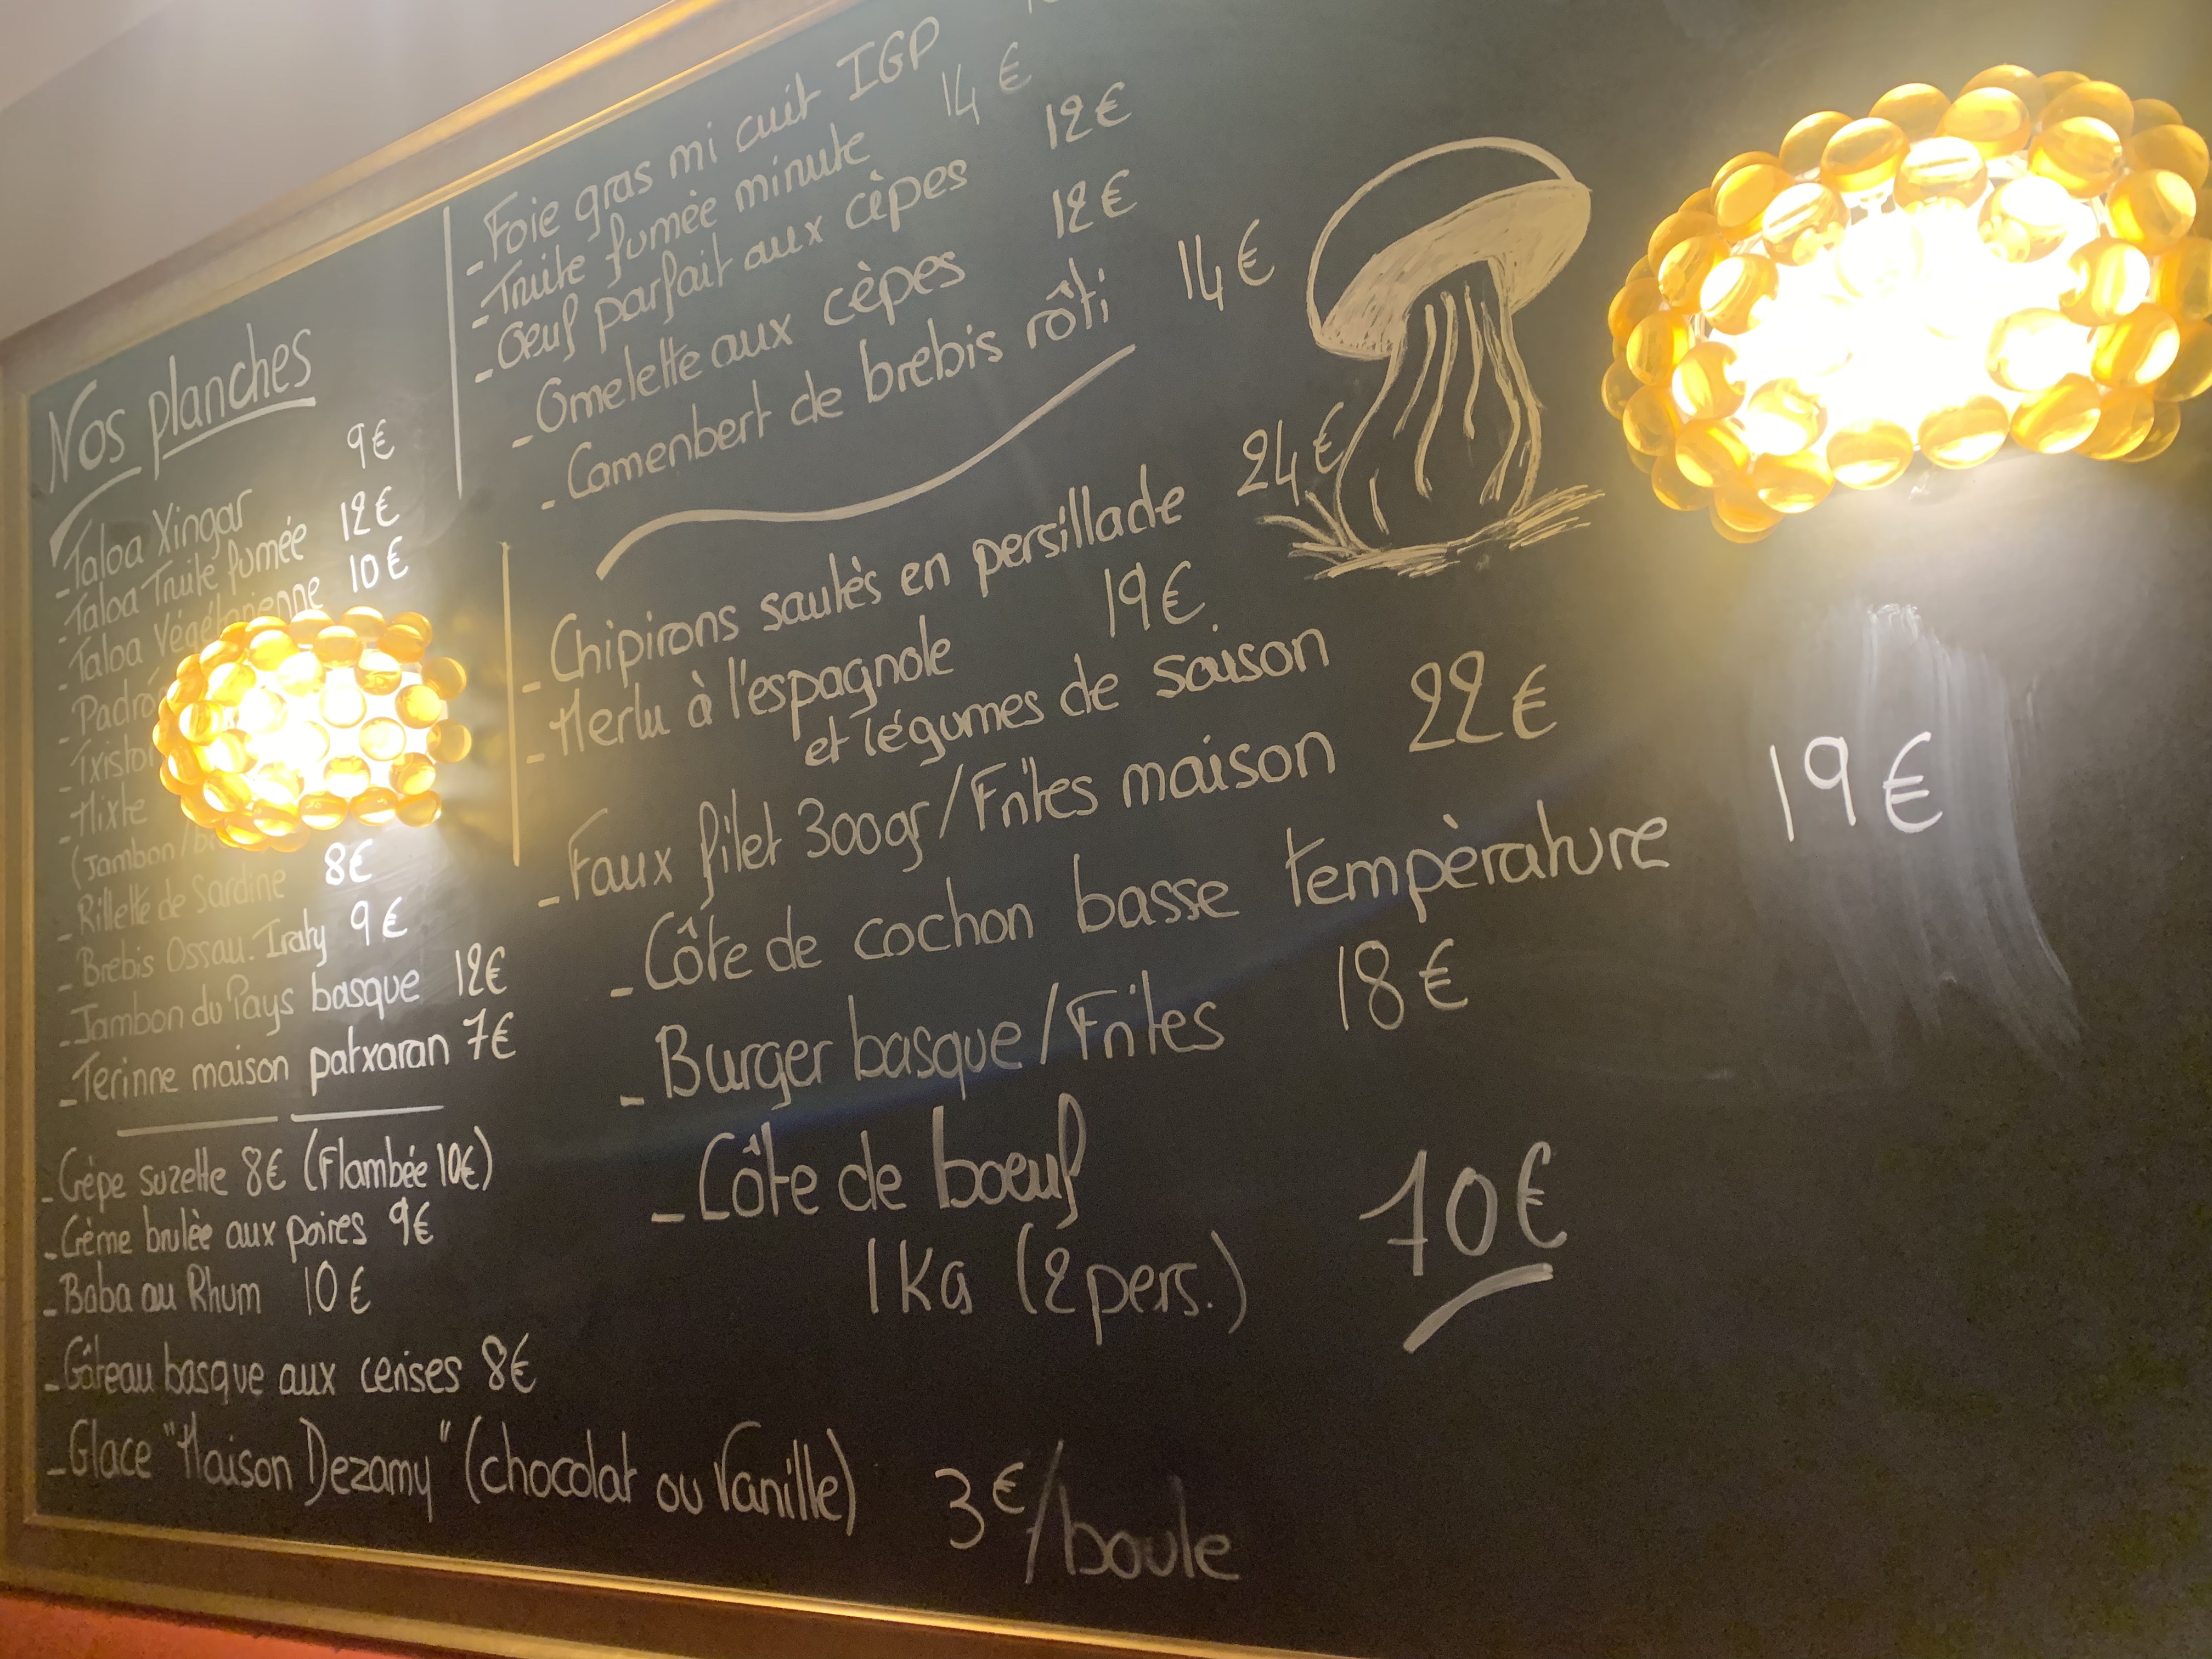 Nos planches
- Taloa Xingar 9€
- Taloa Truite fumée 12€
- Taloa Végétarienne 10€
- Padró
- Txisto
- Mixte
(Jambon/
- Rillette de Sardine 8€
- Brebis Ossau.Iraty 9€
- Jambon du Pays basque 12€
- Terinne maison patxaran 7€
- Crêpe suzette 8€ (Flambée 10€)
- Crème brulèe aux poires 9€
- Baba au Rhum 10€
- Gâteau basque aux cerises 8€
- Glace "Maison Dezamy" (chocolat ou Vanille) 3€/boule
- Foie gras mi cuit IGP
- Truite fumèe minute 14€
- Oeuf parfait aux cèpes 12€
- Omelette aux cèpes 12€
- Camenbert de brebis rôti 14€
- Chipirons sautès en persillade 24€
- Merlu à l'espagnole 19€
et légumes de saison
- Faux filet 300gr/Frites maison 22€
- Côte de cochon basse tempèrature 19€
- Burger basque/Frites 18€
- Côte de boeuf
1Kg (2pers.) 70€